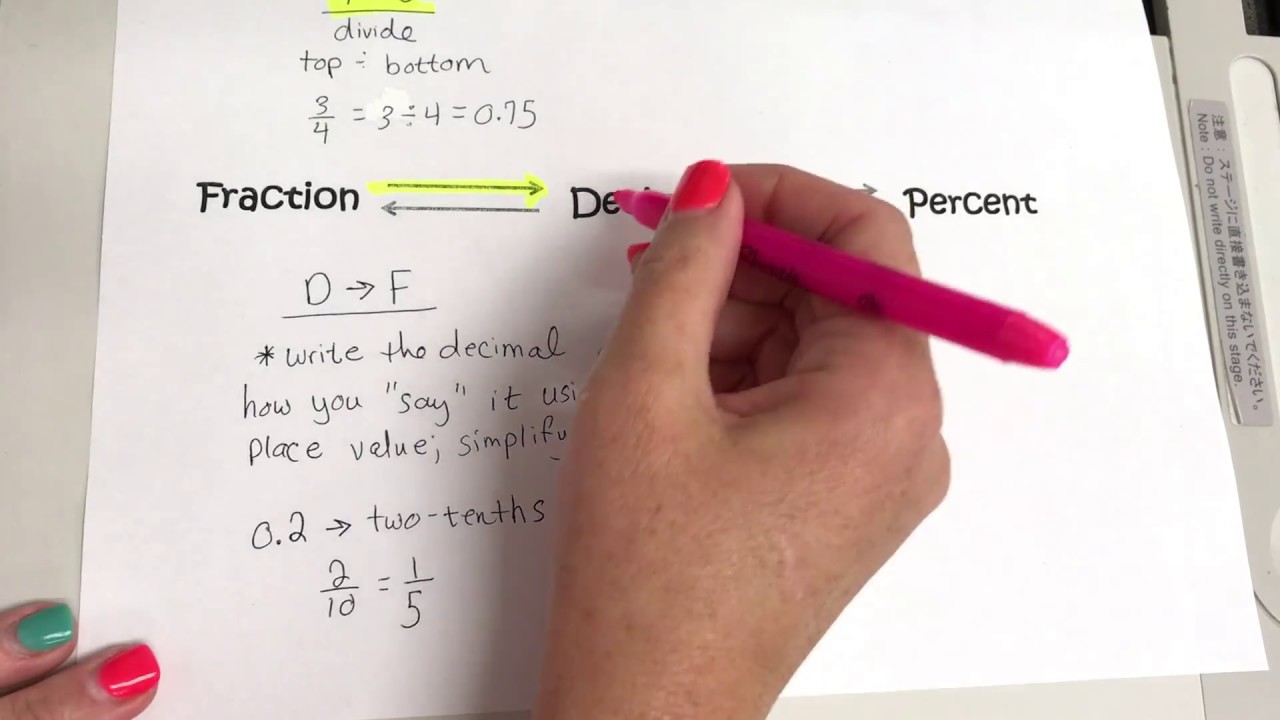 divide
top ÷ bottom
3/4 = 3÷4 = 0.75
Fraction Percent
D → F
*write the decimal
how you "say" it
place value; simplify
0.2 → two-tenths
2/10 = 1/5
注意：ステージに直接書き込まないでください。
Note : Do not write directly on this stage.